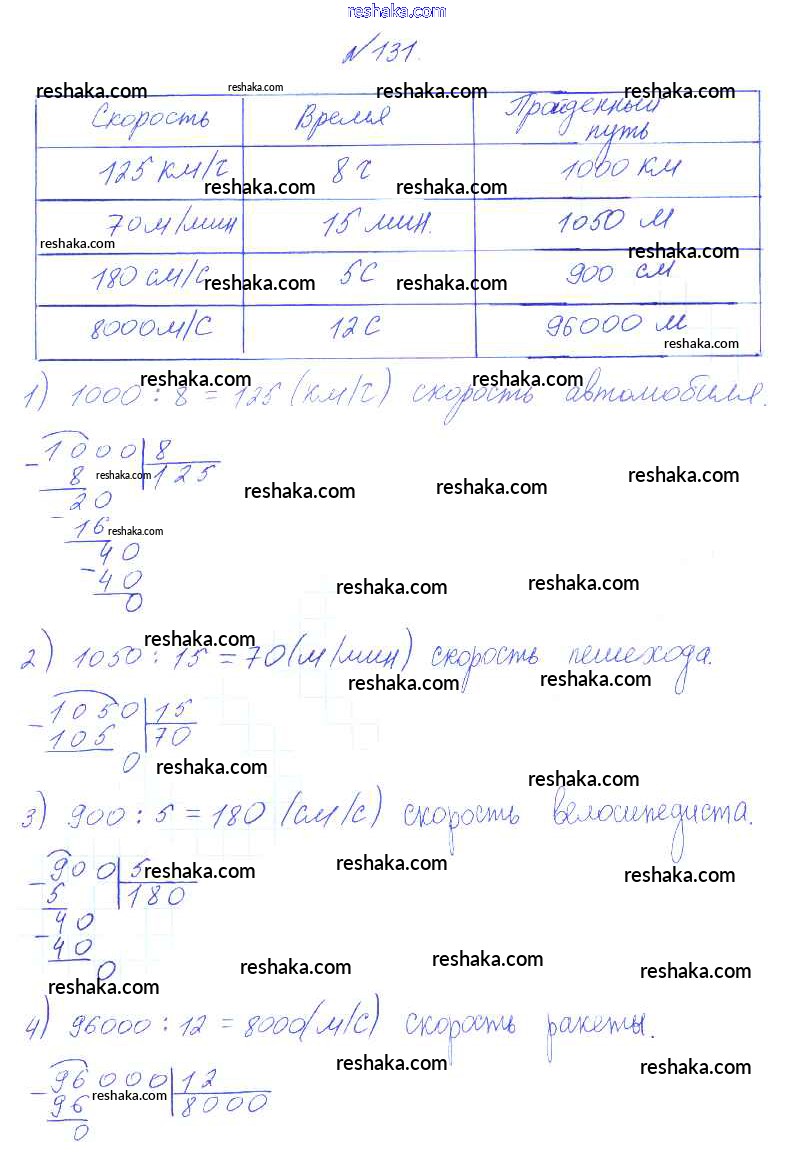 reshaka.com
№131.
reshaka.com reshaka.com reshaka.com reshaka.com
Скорость Время Пройденный путь
125 км/ч 8 ч 1000 км
reshaka.com reshaka.com
70 м/мин 15 мин. 1050 м
reshaka.com reshaka.com
180 см/с 5 с 900 см
reshaka.com reshaka.com
8000 м/с 12 с 96000 м
reshaka.com
reshaka.com reshaka.com
1) 1000 : 8 = 125 (км/ч) скорость автомобиля.
1000 8
8 reshaka.com 125
reshaka.com reshaka.com reshaka.com
20
16 reshaka.com
40
40
reshaka.com reshaka.com
0
reshaka.com
2) 1050 : 15 = 70 (м/мин) скорость пешехода.
reshaka.com reshaka.com
1050 15
105 70
0
reshaka.com
reshaka.com
3) 900 : 5 = 180 (см/с) скорость велосипедиста.
900 5
reshaka.com reshaka.com reshaka.com
5 180
40
40
0
reshaka.com reshaka.com reshaka.com
reshaka.com
4) 96000 : 12 = 8000 (м/с) скорость ракеты.
reshaka.com reshaka.com
96000 12
96 reshaka.com 8000
0